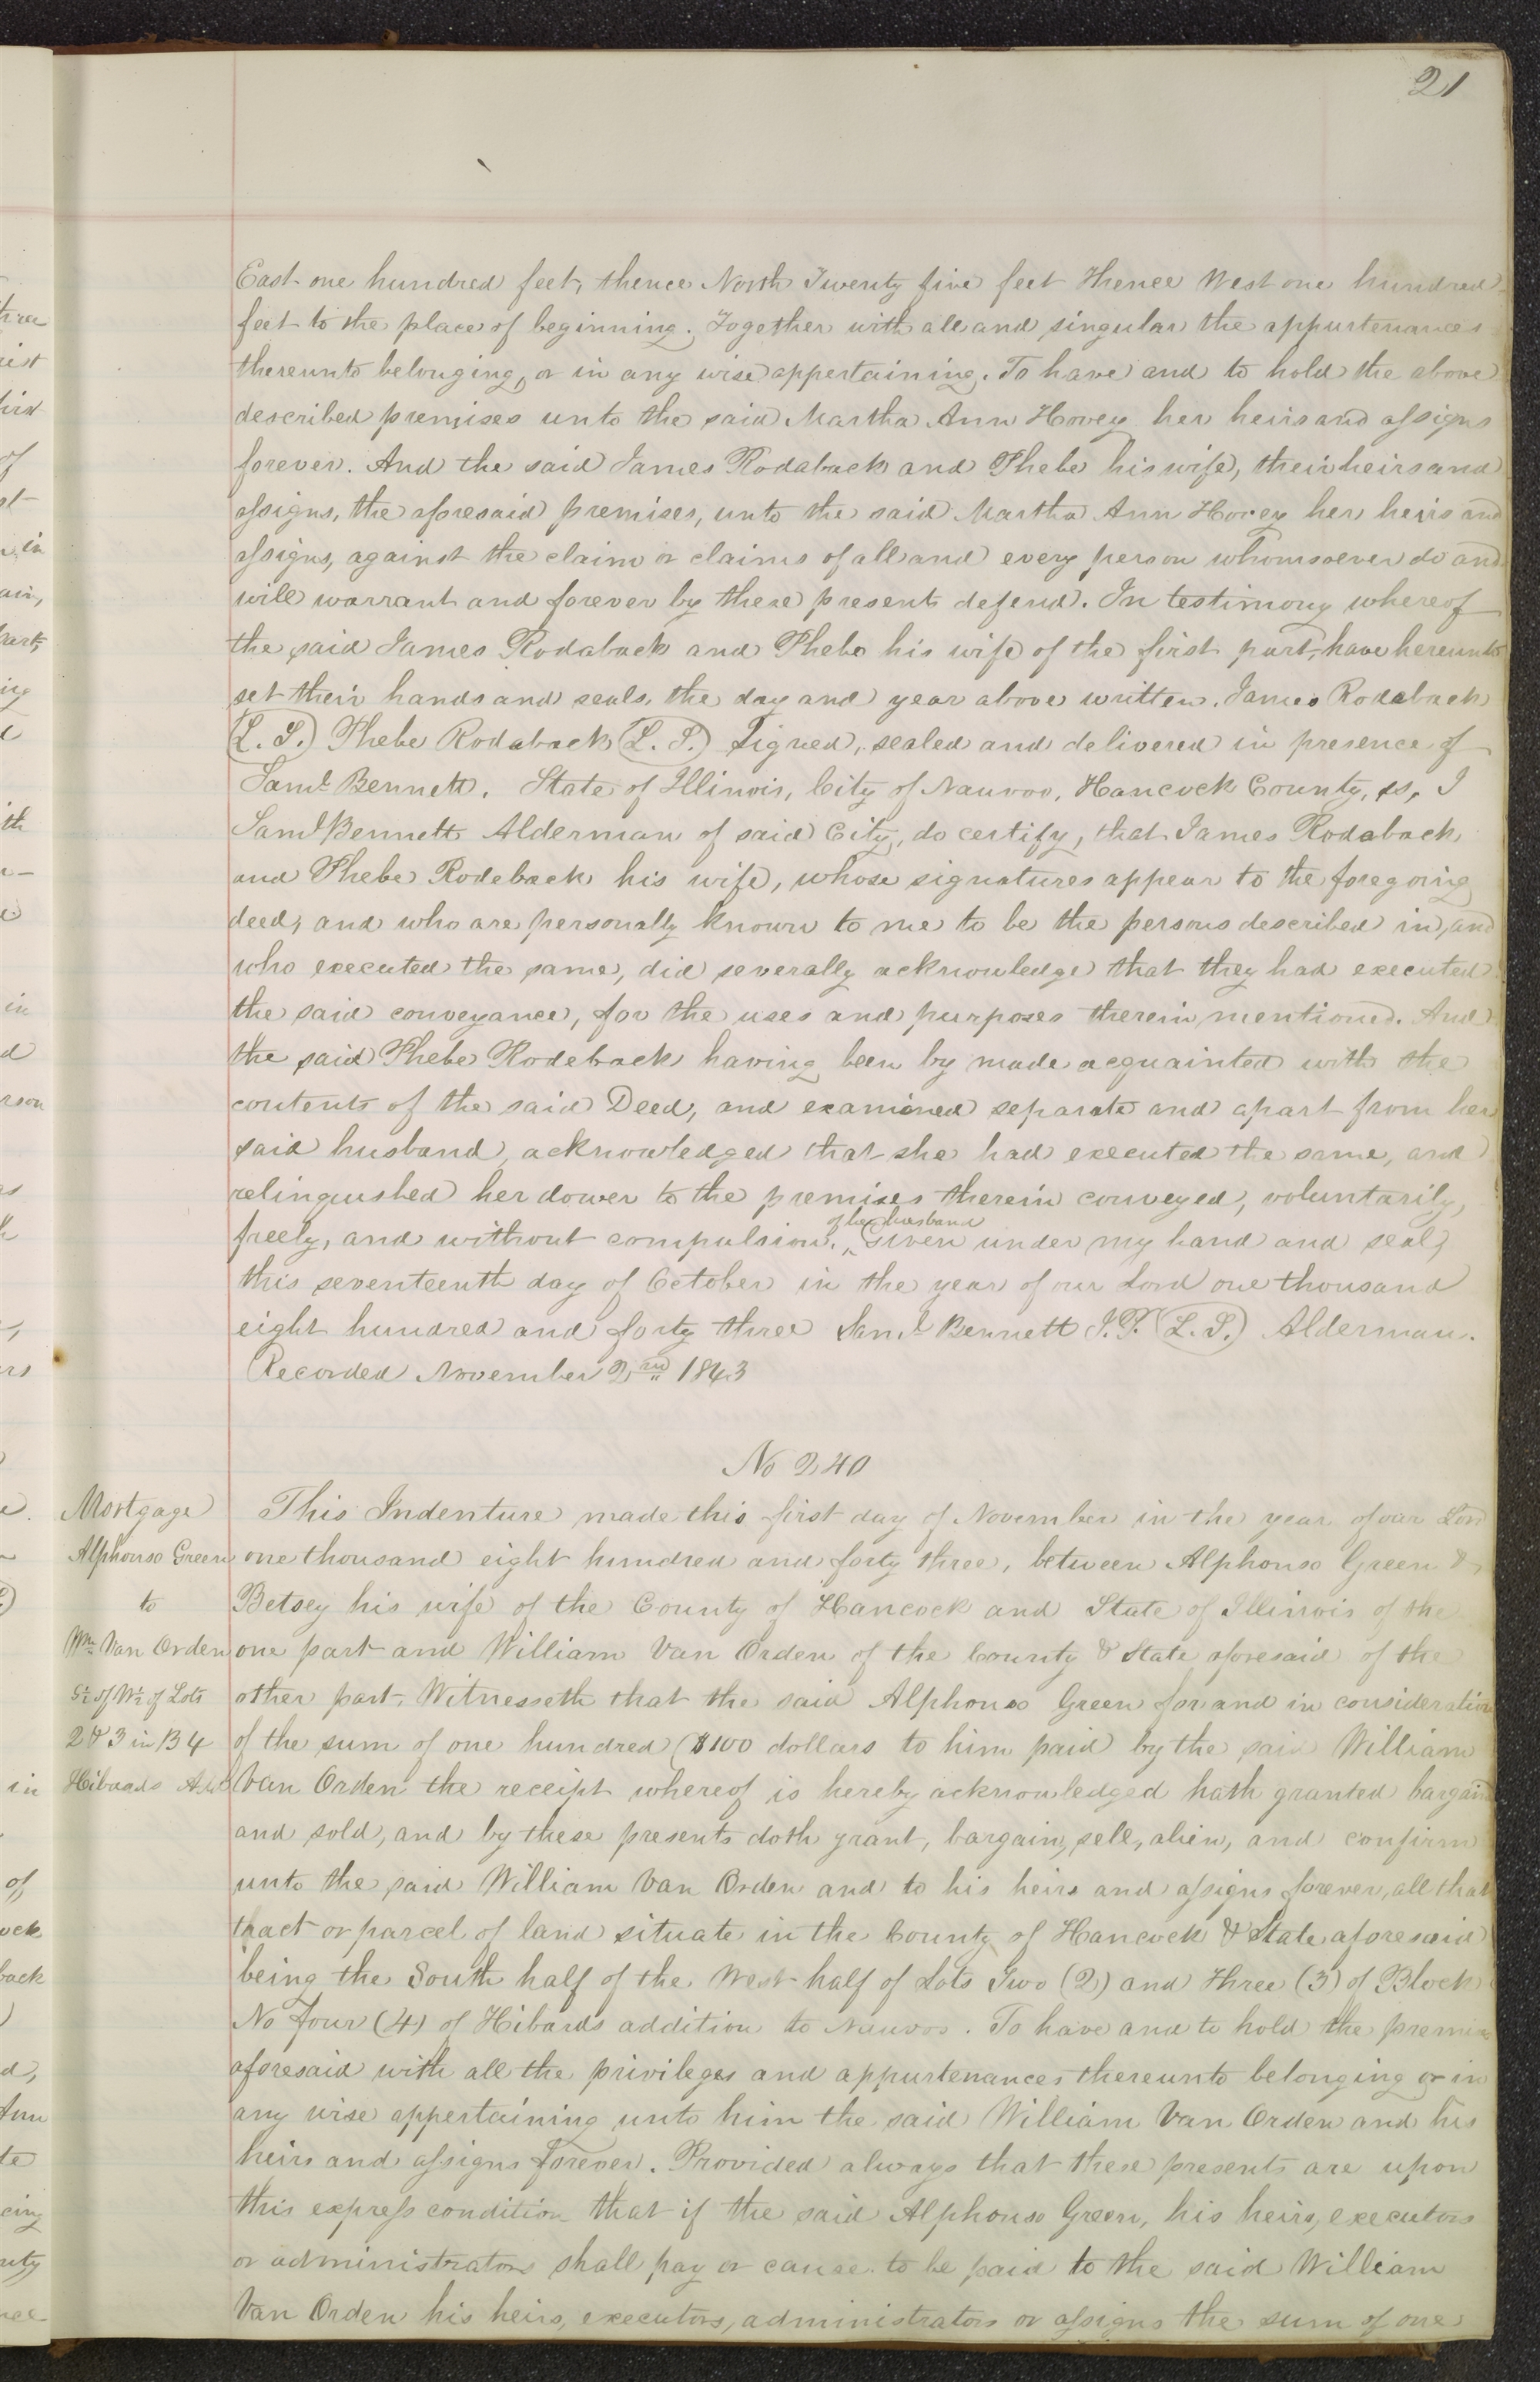 21
East one hundred feet, thence North Twenty five feet thence West one hundred
feet to the place of beginning. Together with all and singular the appurtenances
thereunto belonging, or in any wise appertaining. To have and to hold the above
described premises unto the said Martha Ann Hovey her heirs and assigns
forever. And the said James Rodaback and Phebe his wife, their heirs and
assigns, the aforesaid premises, unto the said Martha Ann Hovey her heirs and
assigns, against the claim or claims of all and every person whomsoever do and
will warrant and forever by these presents defend. In testimony whereof
the said James Rodaback and Phebe his wife of the first part, have hereunto
set their hands and seals, the day and year above written. James Rodaback
(L. S.) Phebe Rodaback (L. S.) Signed, sealed and delivered in presence of
Saml Bennett. State of Illinois, City of Nauvoo, Hancock County, ss, I
Saml Bennett Alderman of said City, do certify, that James Rodaback
and Phebe Rodeback his wife, whose signatures appear to the foregoing
deed, and who are personally known to me to be the persons described in, and
who executed the same, did severally acknowledge that they had executed
the said conveyance, for the uses and purposes therein mentioned. And
the said Phebe Rodeback having been by made acquainted with the
contents of the said Deed, and examined separate and apart from her
said husband, acknowledged that she had executed the same, and
relinquished her dower to the premises therein conveyed, voluntarily,
of her husband
freely, and without compulsion. ^ Given under my hand and seal,
this seventeenth day of October in the year of our Lord one thousand
eight hundred and forty three Saml Bennett J.P. (L. S.) Alderman.
Recorded November 2nd 1843
No 240
Mortgage
Alphonso Green
to
Wm Van Orden
S½ of W½ of Lots
2 & 3 in B 4
Hibards Add
This Indenture made this first day of November in the year of our Lord
one thousand eight hundred and forty three, between Alphonso Green &
Betsey his wife of the County of Hancock and State of Illinois of the
one part and William Van Orden of the County & State aforesaid of the
other part. Witnesseth that the said Alphonso Green for and in consideration
of the sum of one hundred ($100 dollars to him paid by the said William
Van Orden the receipt whereof is hereby acknowledged hath granted bargaind
and sold, and by these presents doth grant, bargain, sell, alien, and confirm
unto the said William Van Orden and to his heirs and assigns forever, all that
tract or parcel of land situate in the County of Hancock & State aforesaid
being the South half of the West half of Lots Two (2) and Three (3) of Block
No Four (4) of Hibards addition to Nauvoo. To have and to hold the premises
aforesaid with all the privileges and appurtenances thereunto belonging or in
any wise appertaining unto him the said William Van Orden and his
heirs and assigns forever. Provided always that these presents are upon
this express condition that if the said Alphonso Green, his heirs, executors
or administrators shall pay or cause to be paid to the said William
Van Orden his heirs, executors, administrators or assigns the sum of one